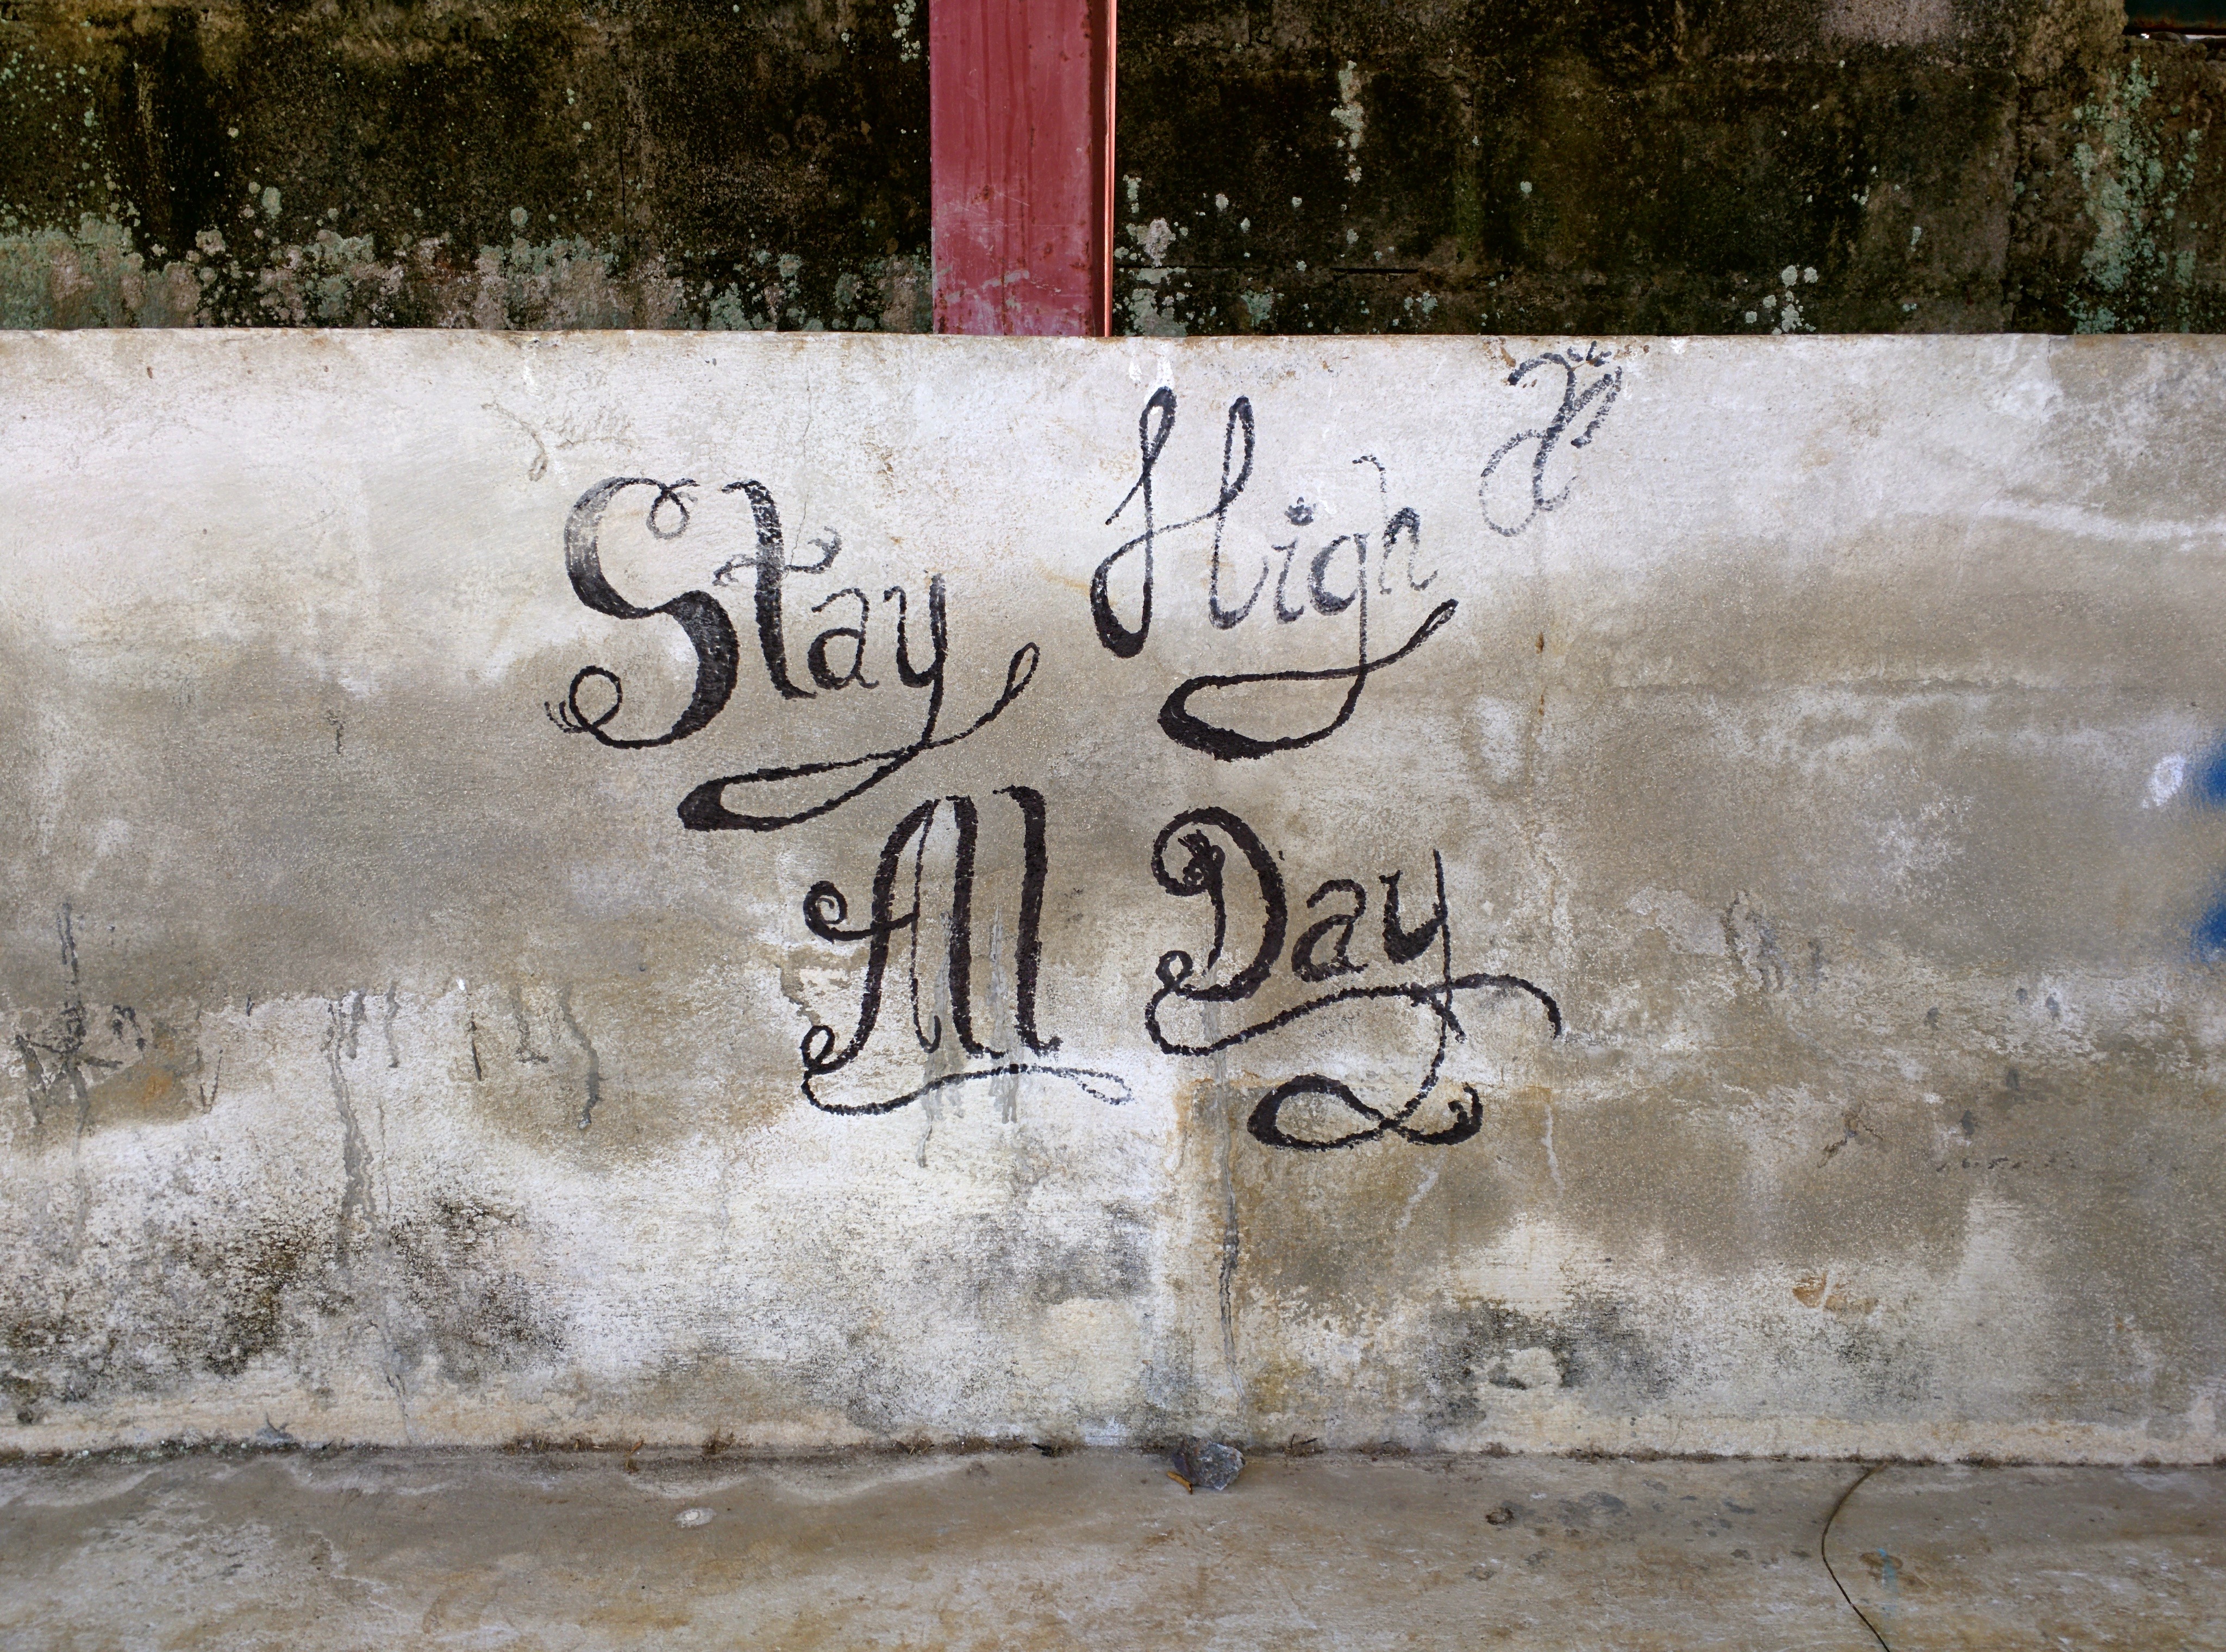 Stay High
All Day